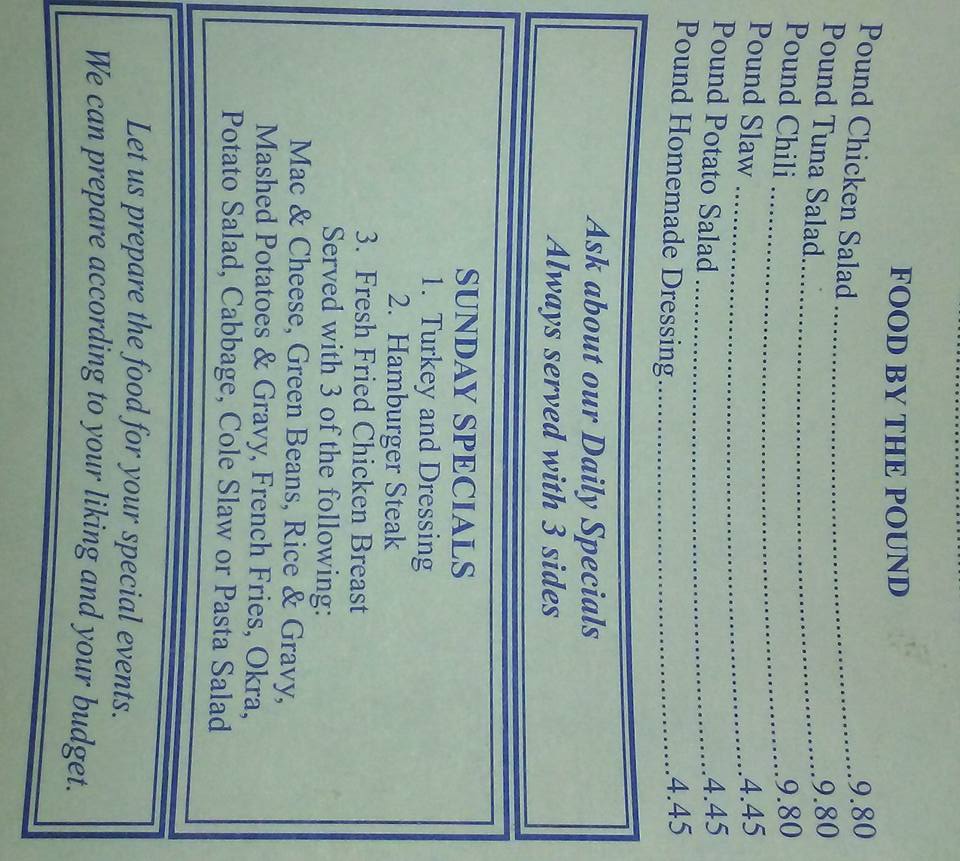 FOOD BY THE POUND
Pound Chicken Salad 9.80
Pound Tuna Salad 9.80
Pound Chili 9.80
Pound Slaw 4.45
Pound Potato Salad 4.45
Pound Homemade Dressing 4.45
Ask about our Daily Specials
Always served with 3 sides
SUNDAY SPECIALS
1. Turkey and Dressing
2. Hamburger Steak
3. Fresh Fried Chicken Breast
Served with 3 of the following:
Mac & Cheese, Green Beans, Rice & Gravy,
Mashed Potatoes & Gravy, French Fries, Okra,
Potato Salad, Cabbage, Cole Slaw or Pasta Salad
Let us prepare the food for your special events.
We can prepare according to your liking and your budget.